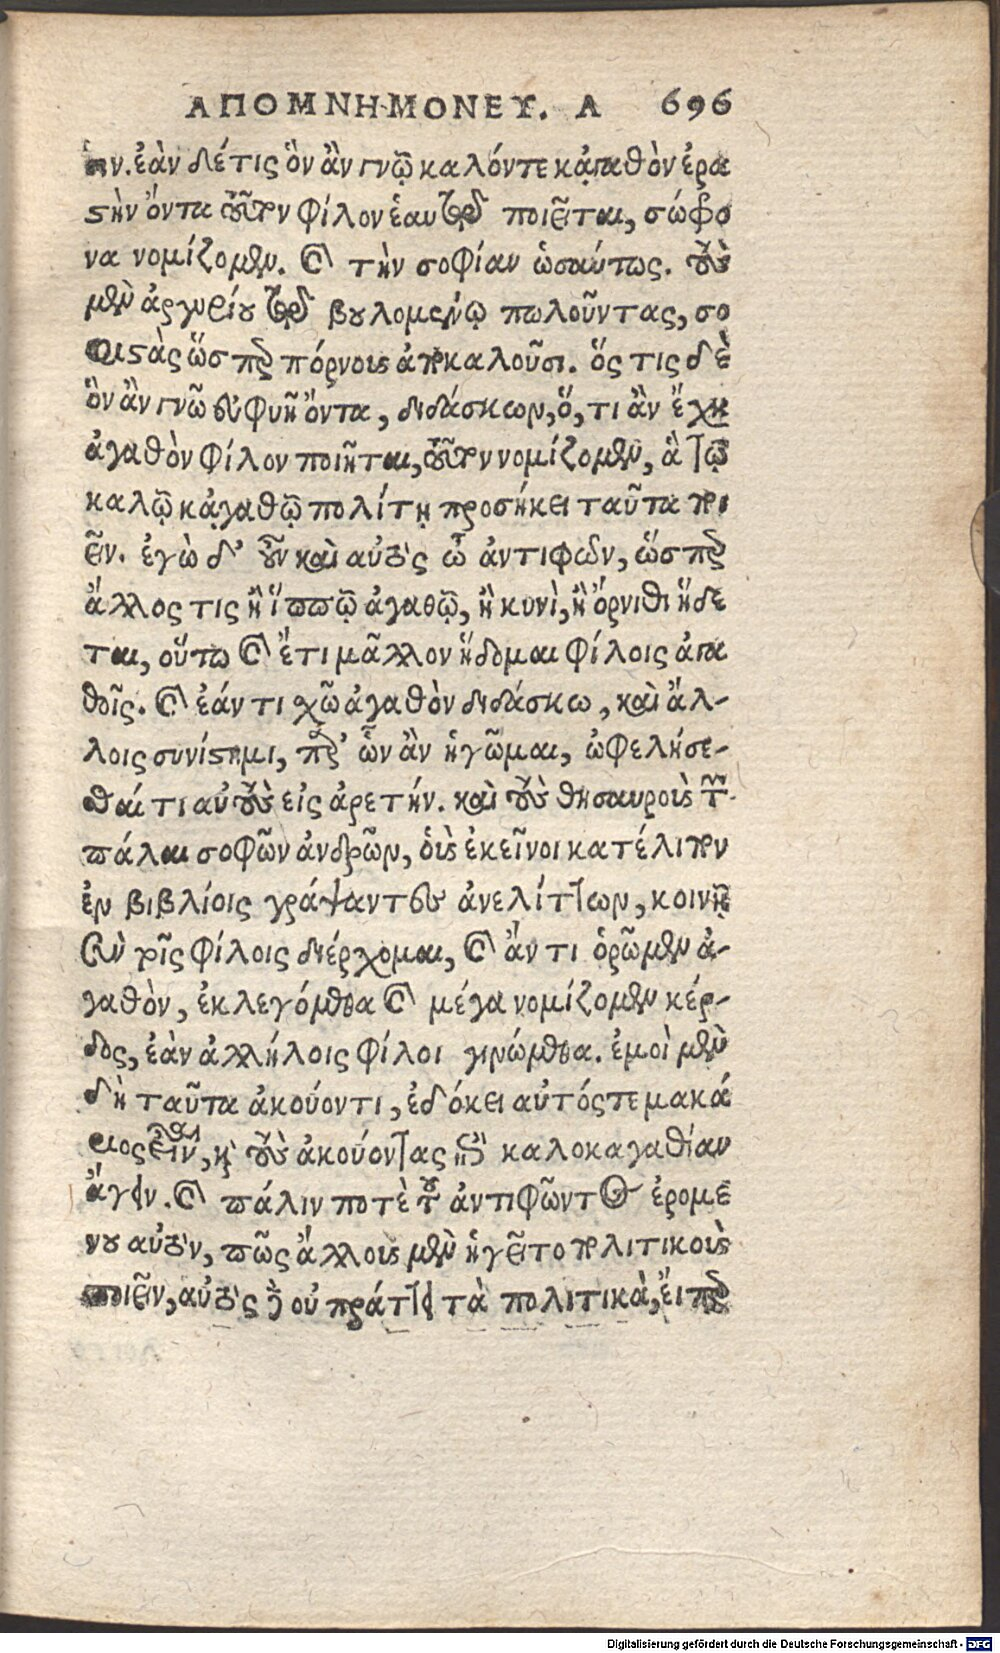 ΑΠΟΜΝΗΜΟΝΕΥ. Α 696
ην. ἐὰν δέ τις ὃν ἂν γνῷ καλόν τε κἀγαθὸν ἐρα
στὴν ὄντα τοῦτον φίλον ἑαυτῷ ποιεῖται, σώφρο
να νομίζομεν. καὶ τὴν σοφίαν ὡσαύτως. τοὺς
μὲν ἀργυρίου τῷ βουλομένῳ πωλοῦντας, σο
φιστὰς ὥσπερ πόρνους ἀποκαλοῦσι. ὅς τις δὲ
ὃν ἂν γνῶ εὐφυῆ ὄντα, διδάσκων, ὅ, τι ἂν ἔχῃ
ἀγαθὸν φίλον ποιῆται, τοῦτον νομίζομεν, ἃ τῷ
καλῷ κἀγαθῷ πολίτῃ προσήκει ταῦτα ποι
εῖν. ἐγὼ δ' οὖν καὶ αὐτὸς ὦ ἀντιφῶν, ὥσπερ
ἄλλος τις ἢ ἵππῳ ἀγαθῷ, ἢ κυνὶ, ἢ ὄρνιθι ἥδε
ται, οὕτω καὶ ἔτι μᾶλλον ἥδομαι φίλοις ἀγα
θοῖς. καὶ ἐάν τι χῶ ἀγαθὸν διδάσκω, καὶ ἄλ-
λοις συνίστημι, παρ' ὧν ἂν ἡγῶμαι, ὠφελήσε-
σθαί τι αὐτοὺς εἰς ἀρετήν. καὶ τοὺς θησαυροὺς τῶν
πάλαι σοφῶν ἀνδρῶν, οὓς ἐκεῖνοι κατέλιπον
ἐν βιβλίοις γράψαντες ἀνελίττων, κοινῇ
σὺν τοῖς φίλοις διέρχομαι, καὶ ἄν τι ὁρῶμεν ἀ-
γαθὸν, ἐκλεγόμεθα καὶ μέγα νομίζομεν κέρ-
δος, ἐὰν ἀλλήλοις φίλοι γινώμεθα. ἐμοὶ μὲν
δὴ ταῦτα ἀκούοντι, ἐδόκει αὐτός τε μακά
ριος εἶναι, καὶ τοὺς ἀκούοντας ἐπὶ καλοκαγαθίαν
ἄγειν. καὶ πάλιν ποτὲ τοῦ ἀντιφῶντος ἐρομέ
νου αὐτὸν, πῶς ἄλλους μὲν ἡγεῖτο πολιτικοὺς
ποιεῖν, αὐτὸς δὲ οὐ πράττει τὰ πολιτικὰ, εἴπερ
Digitalisierung gefördert durch die Deutsche Forschungsgemeinschaft - DFG